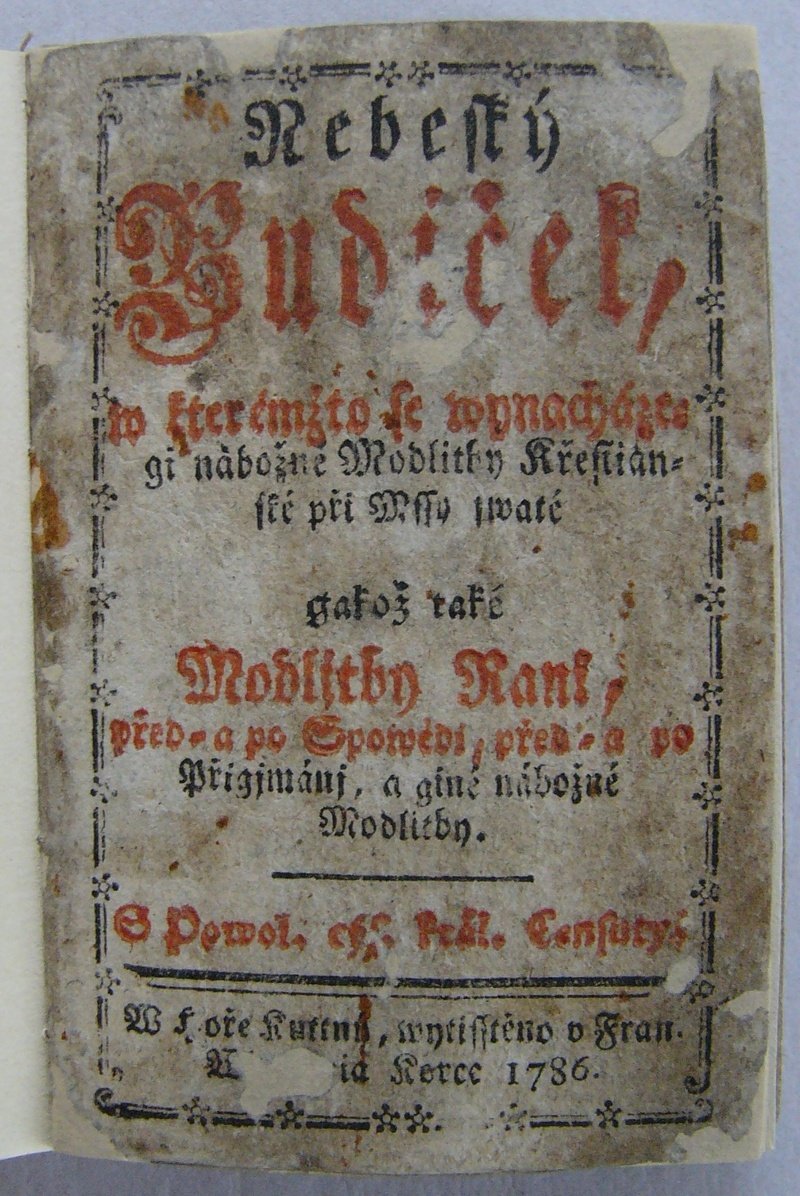 Nebeſký
Budjček,
w kterémžto ſe wynacháze-
gi nábožné Modlitby Křeſtian-
ſké při Mſſy ſwaté
gakož také
Modlitby Ranj,
před- a po Spowědi, před- a po
Přigjmánj, a giné nábožné
Modlitby.
S Powol. cýſ. král. Cenſurý.
W Hoře Kuttný, wytiſſtěno v Fran.
Korce 1786.